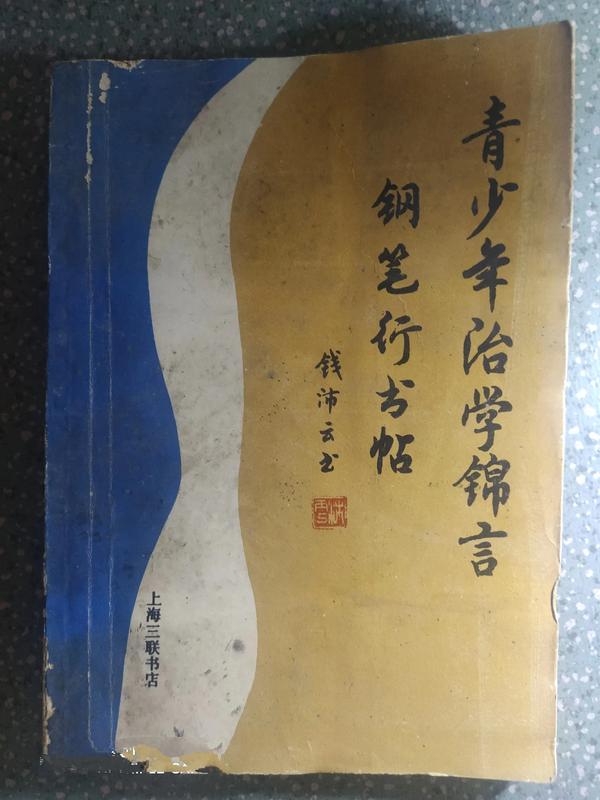 青少年治学锦言
钢笔行书帖
钱沛云书
上海三联书店